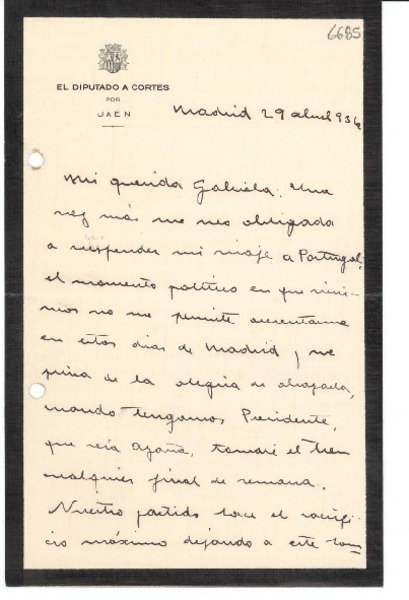 6685
EL DIPUTADO A CORTES
POR
JAÉN
Madrid 29 abril 936
Mi querida Gabriela: Una
vez más me veo obligada
a suspender mi viaje a Portugal;
el momento político en que vivi-
mos no me permite ausentarme
en estos días de Madrid y me
priva de la alegría de abrazarla,
cuando tengamos Presidente,
que será Azaña, tomaré el tren
cualquier final de semana.
Nuestro partido hace el sacrifi-
cio máximo dejando a este hom-